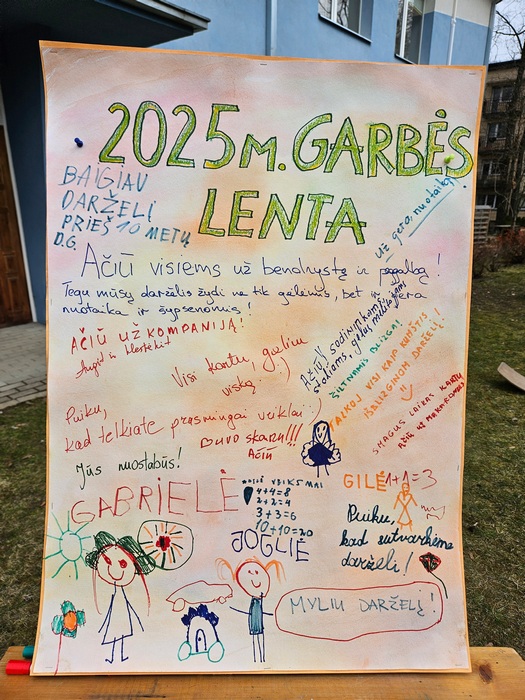 2025 M. GARBĖS
LENTA
BAIGIAU
DARŽELĮ
PRIEŠ 10 METŲ
D.G.
Už gerą nuotaiką
Ačiū visiems už bendrystę ir pagalbą!
Tegu mūsų darželis žydi ne tik gėlėmis, bet ir gera
nuotaika ir šypsenomis!
AČIŪ UŽ KOMPANIJĄ!
Augti ir klestėti!
Visi kartu, galim
viską
Ačiū sodininkams
stodiams, gėlus
ŠILTNAMIS BLIZGA!
TALKOJ VISI KAIP KUMŠTIS
IŠBLIZGINOM DARŽELĮ!
SMAGUS LAIKAS KARTU
AČIŪ UŽ
Puiku,
kad telkiatė prasmingai veiklai :)
BUVO SKANU!!!
AČIŪ
Jūs nuostabūs!
GABRIELĖ
VEIKSMAI
4+4=8
2+2=4
3+3=6
10+10=20
JOGLIĖ
GILĖ 1+1=3
Puiku,
kad sutvarkėme
darželį!
MYLIU DARŽELĮ!